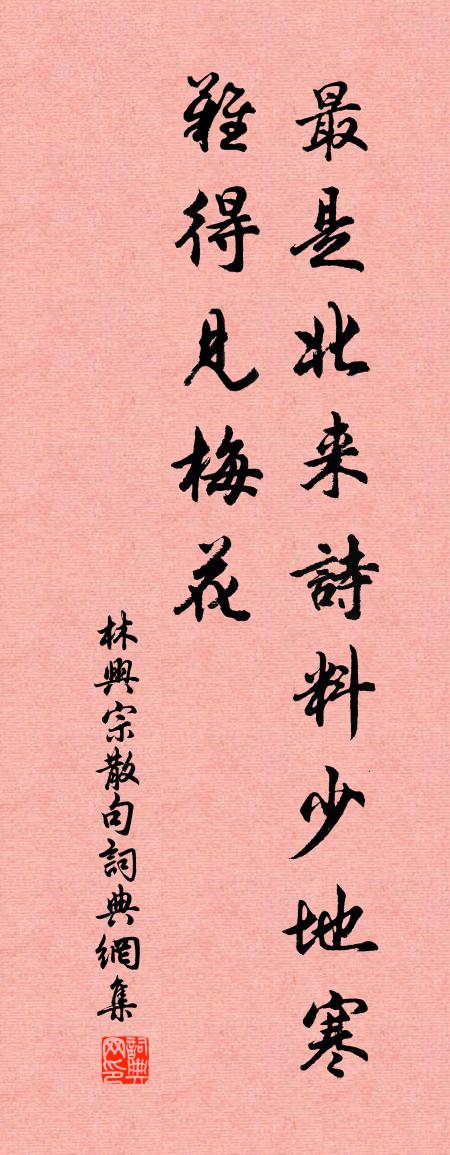 最是北来詩料少地寒
難得見梅花
林興宗散句詞典網集
詞典网印